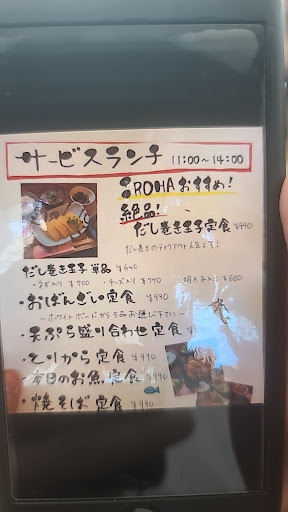 サービスランチ 11:00～14:00
IROHAおすすめ!
絶品!
だし巻き玉子定食 ¥990
だし巻きのテイクアウト人気です!
だし巻き玉子 単品 ¥640
・ネギ入り ¥700 ・チーズ入り ¥790 明太子入り ¥880
・おばんざい定食 ¥990
～ホワイトボードから5品お選び下さい～
・天ぷら盛り合わせ定食
・とりから定食 ¥990
・本日のお魚定食 ¥990
・焼そば定食 ¥990